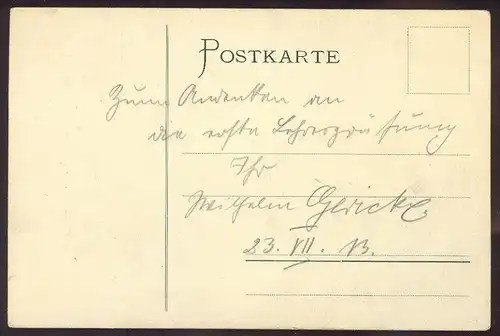 POSTKARTE
Zum Andenken an
die erste Lehrerprüfung
Ihr
Wilhelm Gericke.
23. VII. 13.